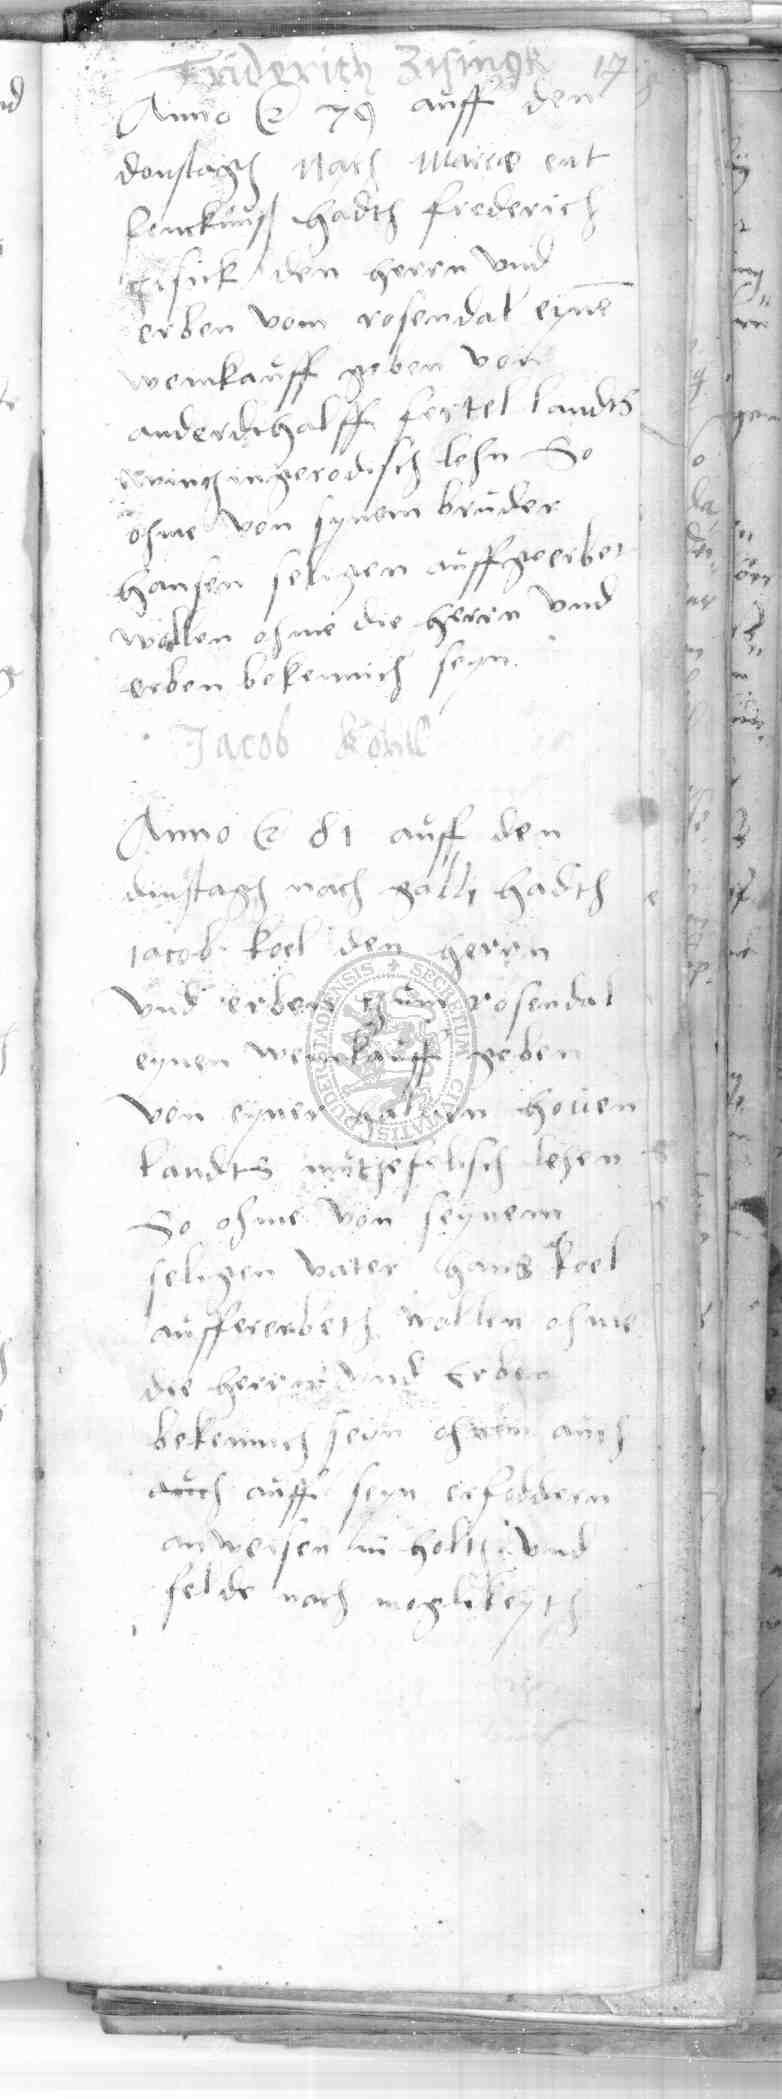 Friderich Zisingk 17
Anno &c 79 auff den
donstagh Nach Marie ent
fenckung hadth frederich
zisick den herrn vnd
erben vom rosendal eyne
weinkauff geben von
anderdthalff fertel landts
wintzingerodisch lehn So
ohme von synem bruder
hansen seligen auffgeerbet
wollen ohme die herrn vnd
erben bekennich seyn
Jacob Konil
Anno &c 81 auff den
dinstagh nach galli hadth
iacob koel den herrn
vnd erben zum rosendal
eynen weinkauff geben
von eyner halben houen
landts lehen
So ohme von seynem
seligen vater hans koel
auffererbeth wollen ohme
die herrn vnd Erben
bekennich seyn ohnen auch
auch auff seyn erfoddern
anweisen in holtz vnd
felde nach moglikeyth
SECRETUM CIVITATIS DUDERSTADENSIS